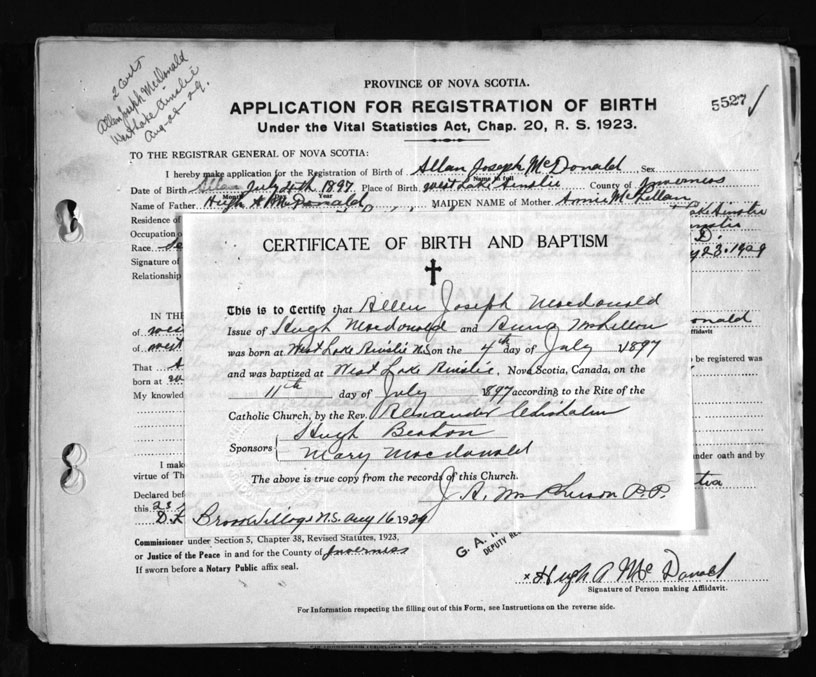 2 Cert
Allan Joseph McDonald
West Lake Ainslie
Aug-28-29.
PROVINCE OF NOVA SCOTIA.
APPLICATION FOR REGISTRATION OF BIRTH
5527
Under the Vital Statistics Act, Chap. 20, R. S. 1923.
TO THE REGISTRAR GENERAL OF NOVA SCOTIA:
I hereby make application for the Registration of Birth of Allan Joseph McDonald Sex
Name in full
Date of Birth July 4th 1897 Place of Birth West Lake Ainslie County of Inverness
Month Year
Name of Father Hugh A McDonald MAIDEN NAME of Mother Annie McLellan
Residence of Lake Ainslie
Occupation o
Race D.
Signature of y 23. 1929
Relationship
CERTIFICATE OF BIRTH AND BAPTISM
This is to Certify that Allen Joseph Macdonald
Issue of Hugh Macdonald and Anna McLellan
was born at West Lake Ainslie N.S. on the 4th day of July 1897
and was baptized at West Lake Ainslie, Nova Scotia, Canada, on the
11th day of July 1897 according to the Rite of the
Catholic Church, by the Rev. Alexander Chisholm
Hugh Beaton
Sponsors
Mary Macdonald
The above is true copy from the records of this Church.
J. A. McPherson P.P.
Brook Village N.S. Aug 16 1929
IN THE
of west onald
ffidavit
of west
That to be registered was
born at
My knowled
I mak nder oath and by
virtue of Th
Declared bef
this 28
Commissioner under Section 5, Chapter 38, Revised Statutes, 1923,
or Justice of the Peace in and for the County of Inverness
G. A.
DEPUTY RE
If sworn before a Notary Public affix seal.
x Hugh A McDonald
Signature of Person making Affidavit.
For Information respecting the filling out of this Form, see Instructions on the reverse side.